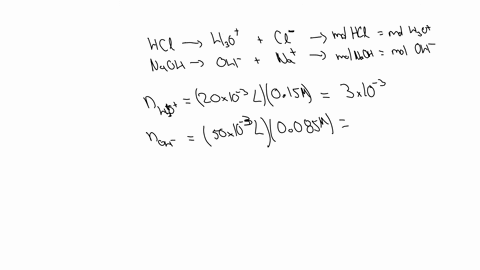 HCl → H₃O⁺ + Cl⁻ → mol HCl = mol H₃O⁺
NaOH → OH⁻ + Na⁺ → mol NaOH = mol OH⁻
n_H₃O⁺ = (20x10⁻³ L)(0.15M) = 3x10⁻³
n_OH⁻ = (50x10⁻³ L)(0.085M) =